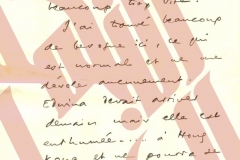 beaucoup trop vite!
J'ai trouvé beaucoup
de besogne ici, ce qui
est normal et ne me
désole aucunement.
Edwina devait arriver
demain mais elle est
enrhumée.... à Hong
Kong et ne pourra se